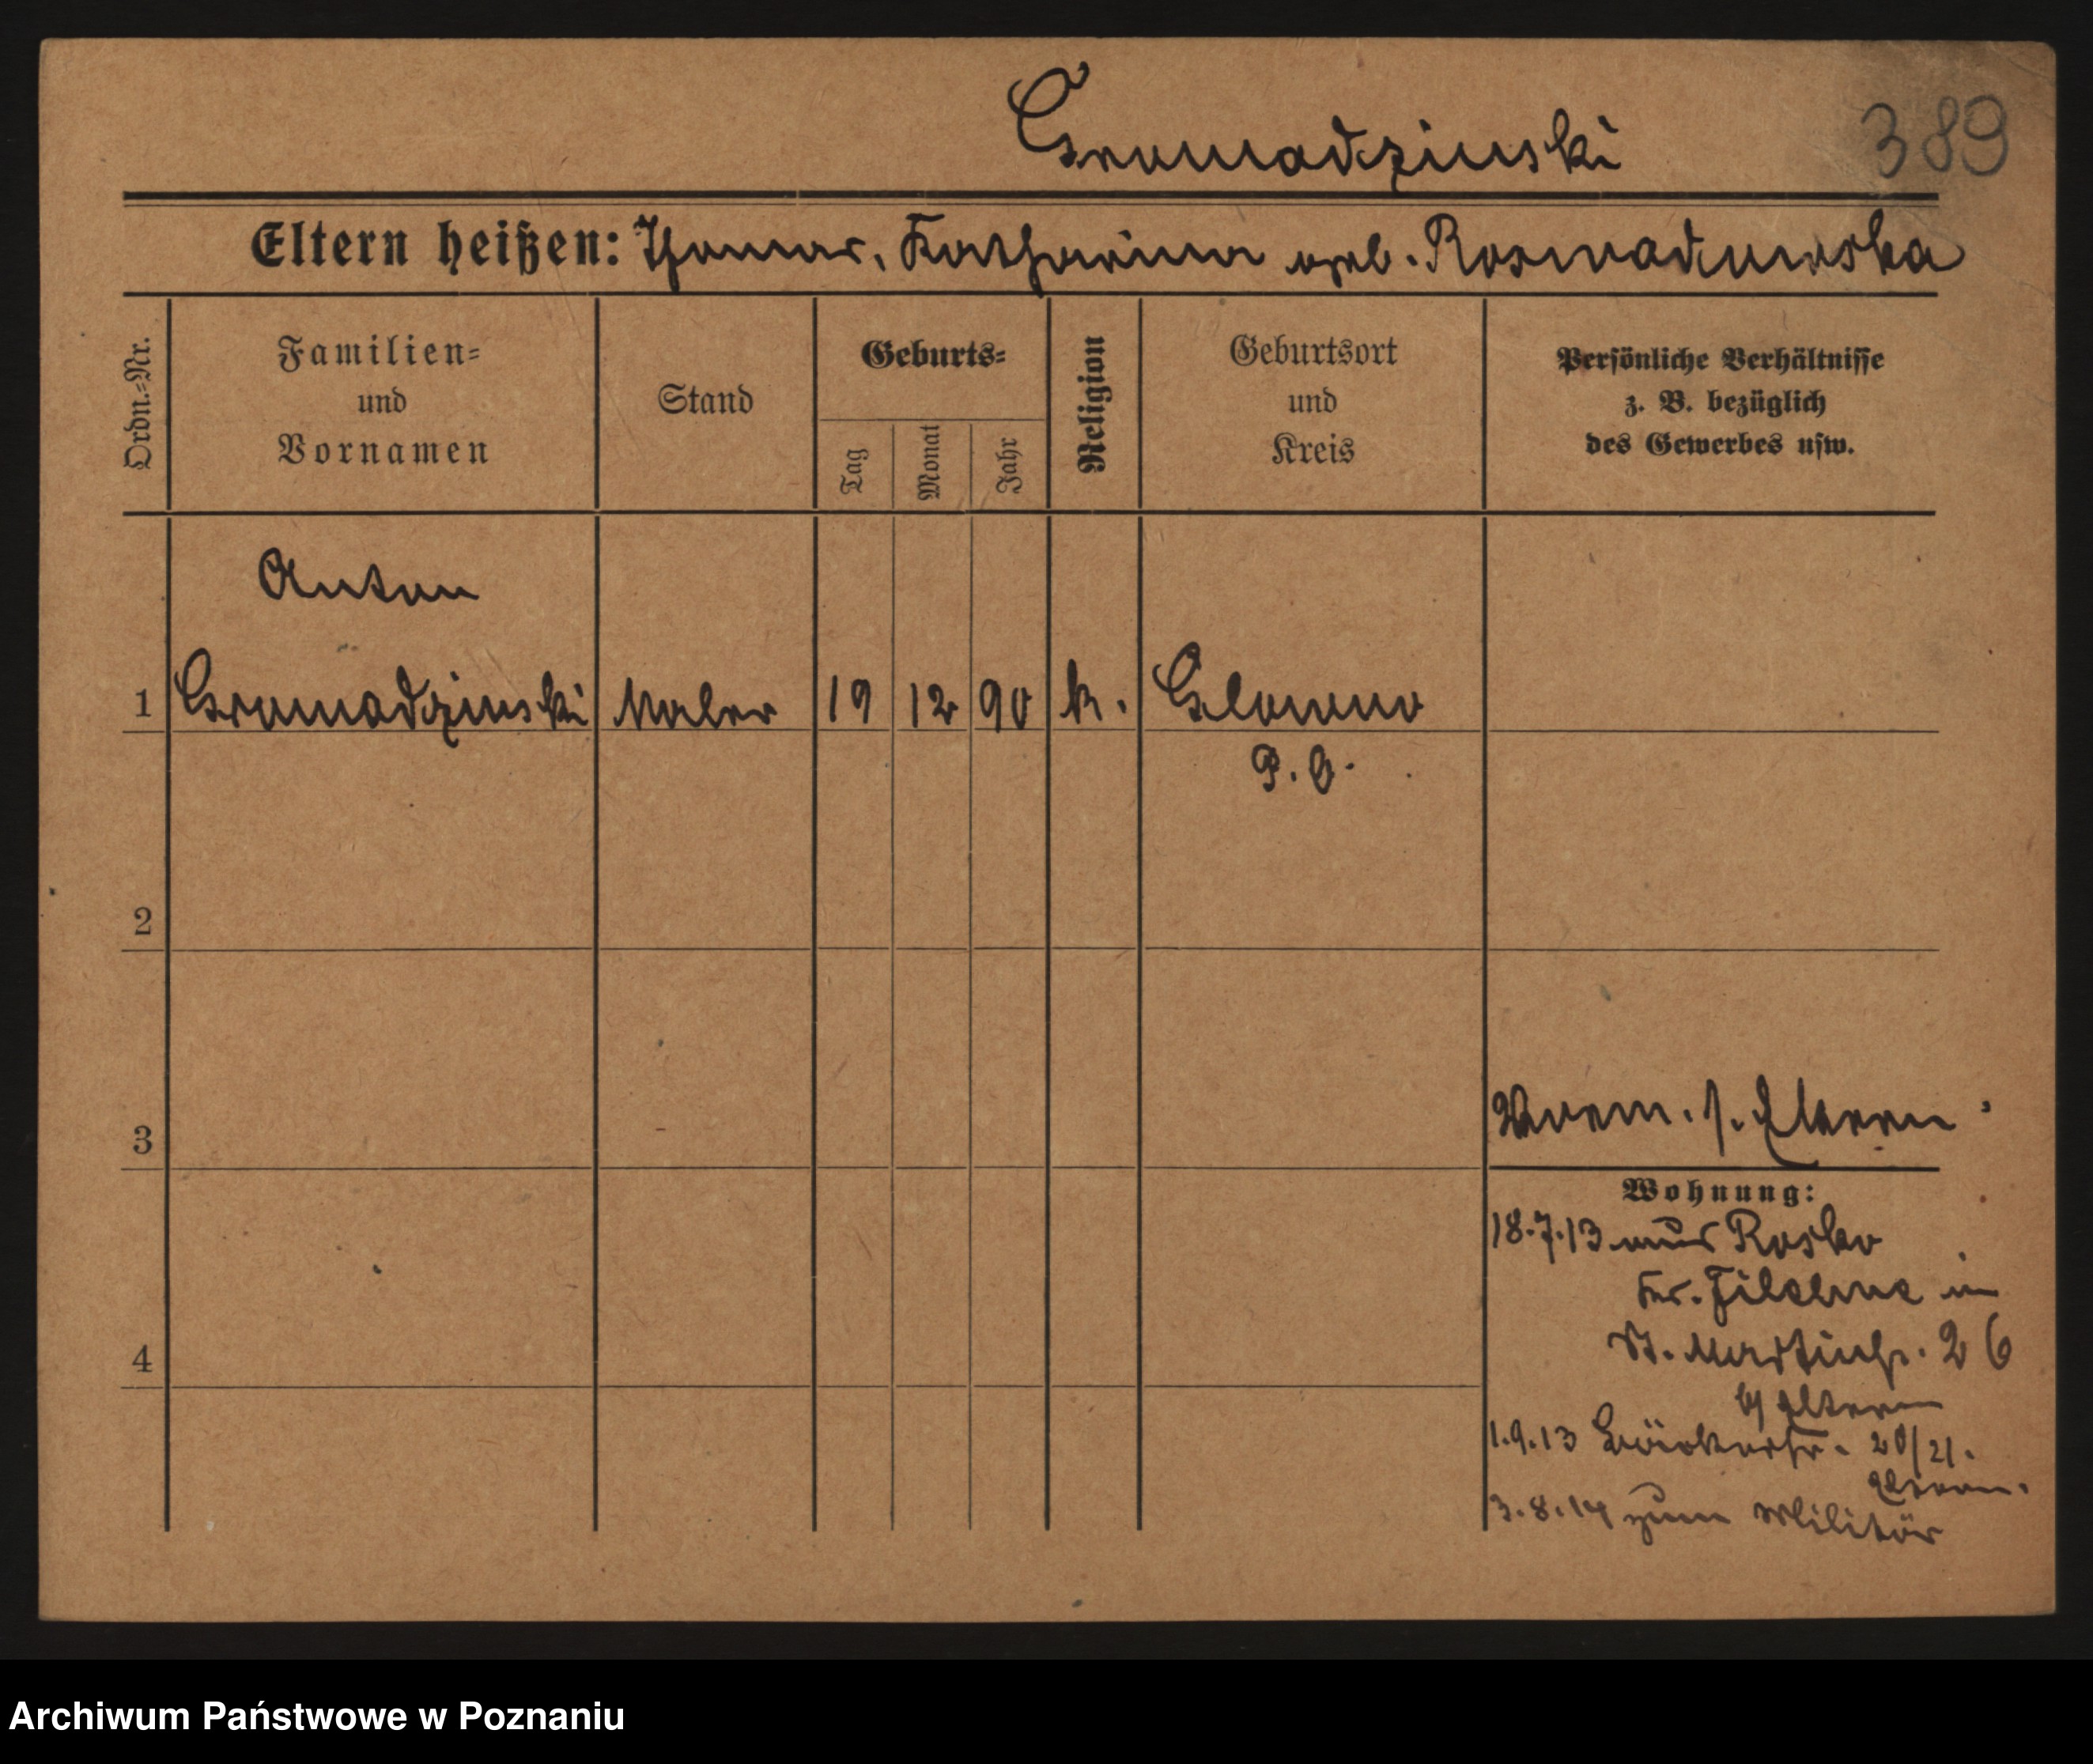 Gromadzinski
389
Eltern heißen: Thomas, Katharina geb. Rosmadowska
Ordn.-Nr.
Familien-
und
Vornamen
Stand
Geburts-
Tag
Monat
Jahr
Religion
Geburtsort
und
Kreis
Persönliche Verhältnisse
z. B. bezüglich
des Gewerbes usw.
Anton
1 Gromadzinski Maler 19 12 90 k. Glowno
P. O.
2
3
Verm. s. Eltern
Wohnung:
18.7.13 aus Rosko
Kr. Filehne in
St. Martinstr. 26
b/ Eltern
1.9.13 Bäckerstr. 20/21.
Eltern.
3.8.14 zum Militär
4
Archiwum Państwowe w Poznaniu